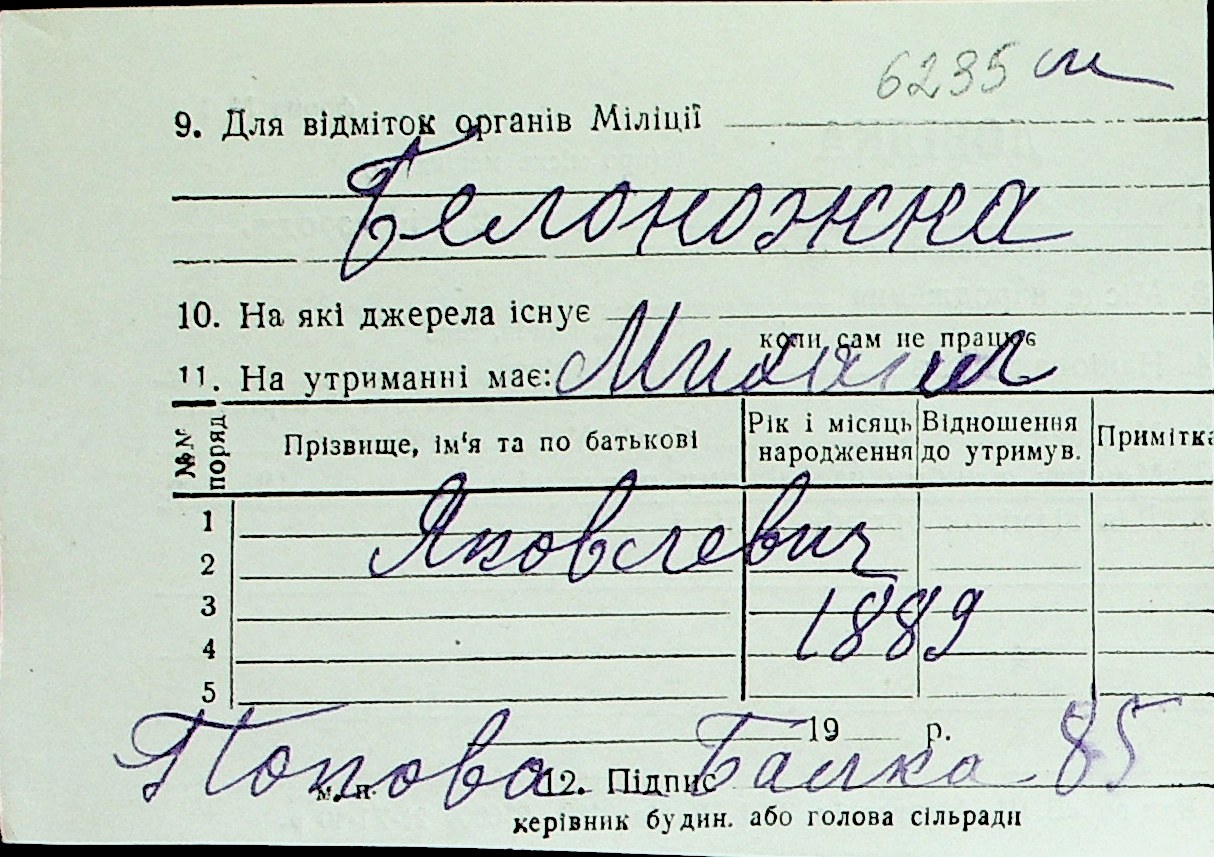 6235 см
9. Для відміток органів Міліції
Белоножка
10. На які джерела існує
коли сам не працює
11. На утриманні має:
Михаил
№№ поряд
Прізвище, ім'я та по батькові
Рік і місяць народження
Відношення до утримув.
Примітка
1
Яковлевич
2
3
1889
4
5
19 р.
Попова Балка 85
м. п.
12. Підпис
керівник будин. або голова сільради